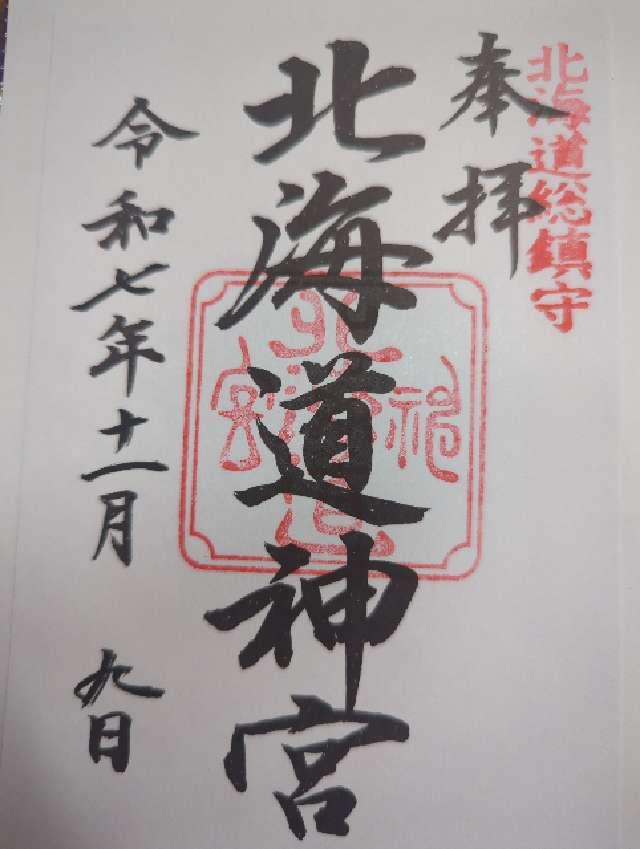 北海道総鎮守
奉拝
北海道神宮
令和七年十一月 九日